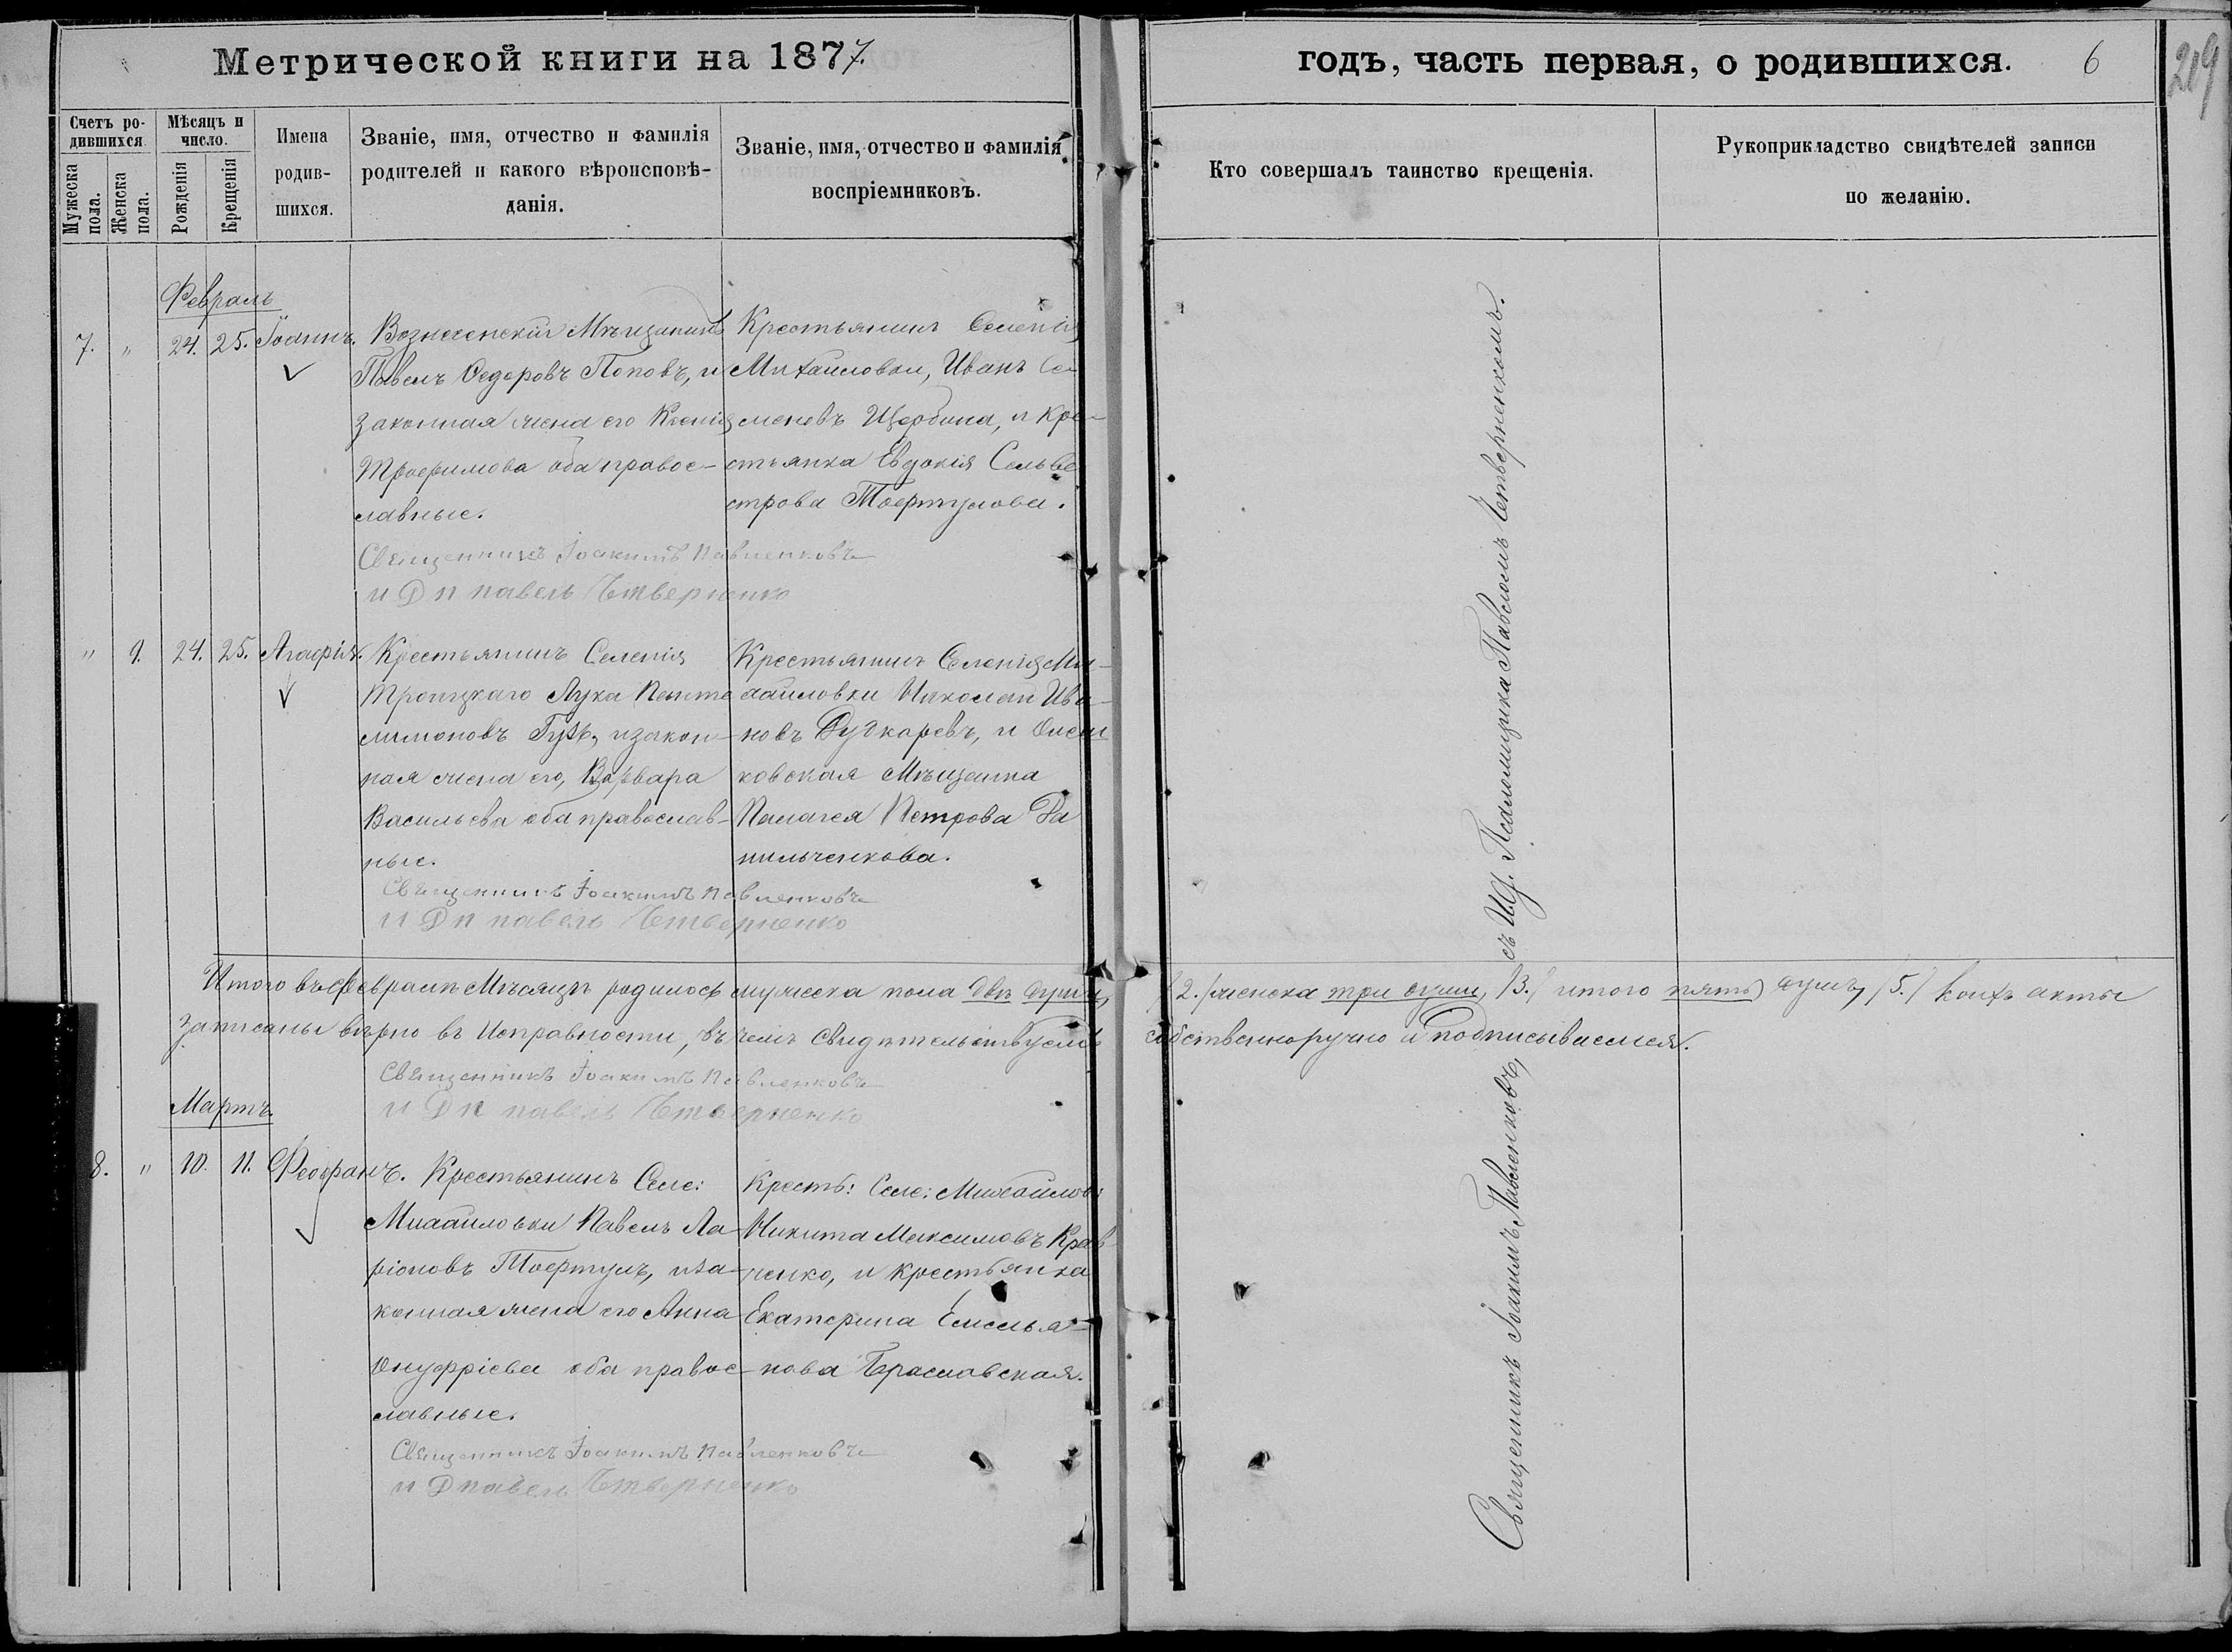 Метрической книги на 1877.
годъ, часть первая, о родившихся.
6
219
Счетъ ро-
дившихся.
Мужеска пола.
Женска пола.
Мѣсяцъ и
число.
Рожденія
Крещенія
Имена
родив-
шихся.
Званіе, имя, отчество и фамилія
родителей и какого вѣроисповѣ-
данія.
Званіе, имя, отчество и фамилія
воспріемниковъ.
Кто совершалъ таинство крещенія.
Рукоприкладство свидѣтелей записи
по желанію.
Февраль
7. " 24. 25. Іоаннъ.
Вознесенскій Мѣщанинъ
Павелъ Ѳедоровъ Поповъ, и
законная жена его Ксенія
Трофимова оба правос-
лавные.
Священникъ Іоакимъ Павленковъ
и Д п павелъ Четверненко
Крестьянинъ Селенія
Михайловки, Иванъ Се-
меновъ Щербина, и Кре-
стьянка Евдокія Сельве
строва Товртулова.
" 9. 24. 25. Агафія.
Крестьянинъ Селенія
Троицкаго Лука Панте
лимоновъ Гузь, и закон-
ная жена его, Варвара
Васильева оба православ-
ные.
Священникъ Іоакимъ Павленковъ
и Д п павелъ Четверненко
Крестьянинъ Селенія Ми-
хайловки Николай Ива-
новъ Дудкаревъ, и
ковская Мѣщанка
Палагея Петрова Да
нильченкова.
Итого въ Февралѣ Мѣсяцѣ родилось мужеска пола двѣ души, /2./ женска три души, /3./ итого пять душъ, /5./ коихъ акты
записаны вѣрно въ Исправности, въ чемъ Свидѣтельствуемъ собственноручно и подписываемся.
Священникъ Іоакимъ Павленковъ
и Д п павелъ Четверненко
Мартъ.
8. " 10. 11. Феофанъ.
Крестьянинъ Селе:
Михайловки Павелъ Ла-
ріоновъ Товртулъ, и за-
конная жена его Анна
Онуфріева оба правос-
лавные.
Священникъ Іоакимъ Павленковъ
и Д павелъ Четверненко
Кресть: Селе: Михайлов:
Никита Максимовъ Крав
ченко, и Крестьянка
Екатерина Емелья-
нова Браславская.
Священникъ Іоакимъ Павленковъ, съ И.Д. Псаломщика Павломъ Четверненкомъ.